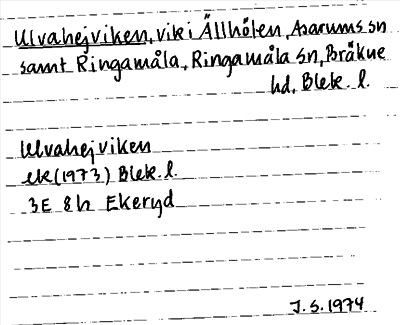 Ulvahejviken, vik i Ällhölen, Asarums sn
samt Ringamåla, Ringamåla sn, Bräkne
hd, Blek. l.
Ulvahejviken
ek(1973) Blek. l.
3E 8h Ekeryd
J. S. 1974